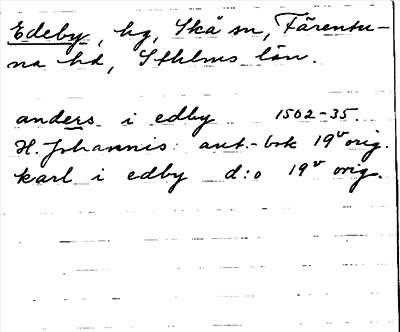 Edeby, hg, Skå sn, Färentu-
na hd, Sthlms län.
anders i edby 1502-35.
H. Johannis ant.-bok 19v orig.
karl i edby d:o 19v orig.